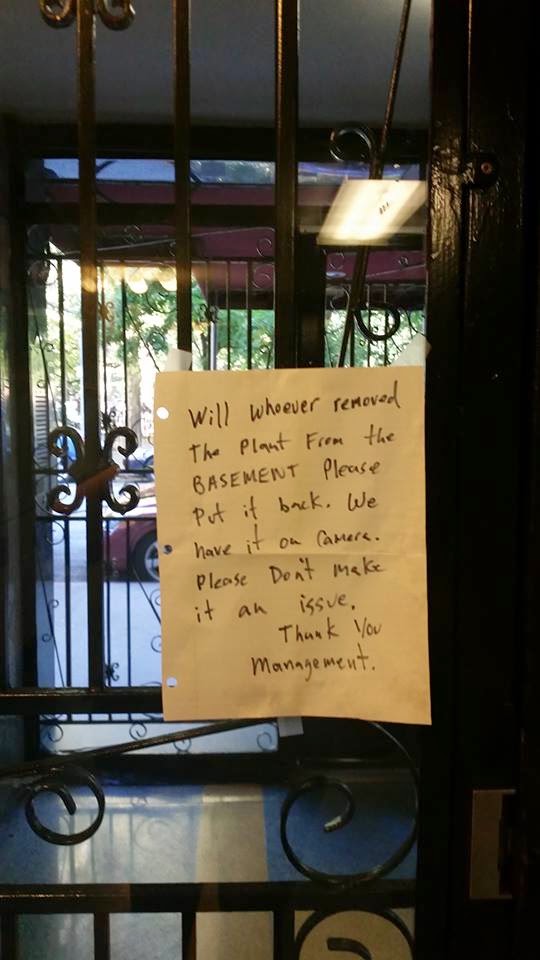 Will whoever removed
The Plant From the
BASEMENT Please
Put it back. We
have it on Camera.
Please Don't make
it an issue.
Thank You
Management.